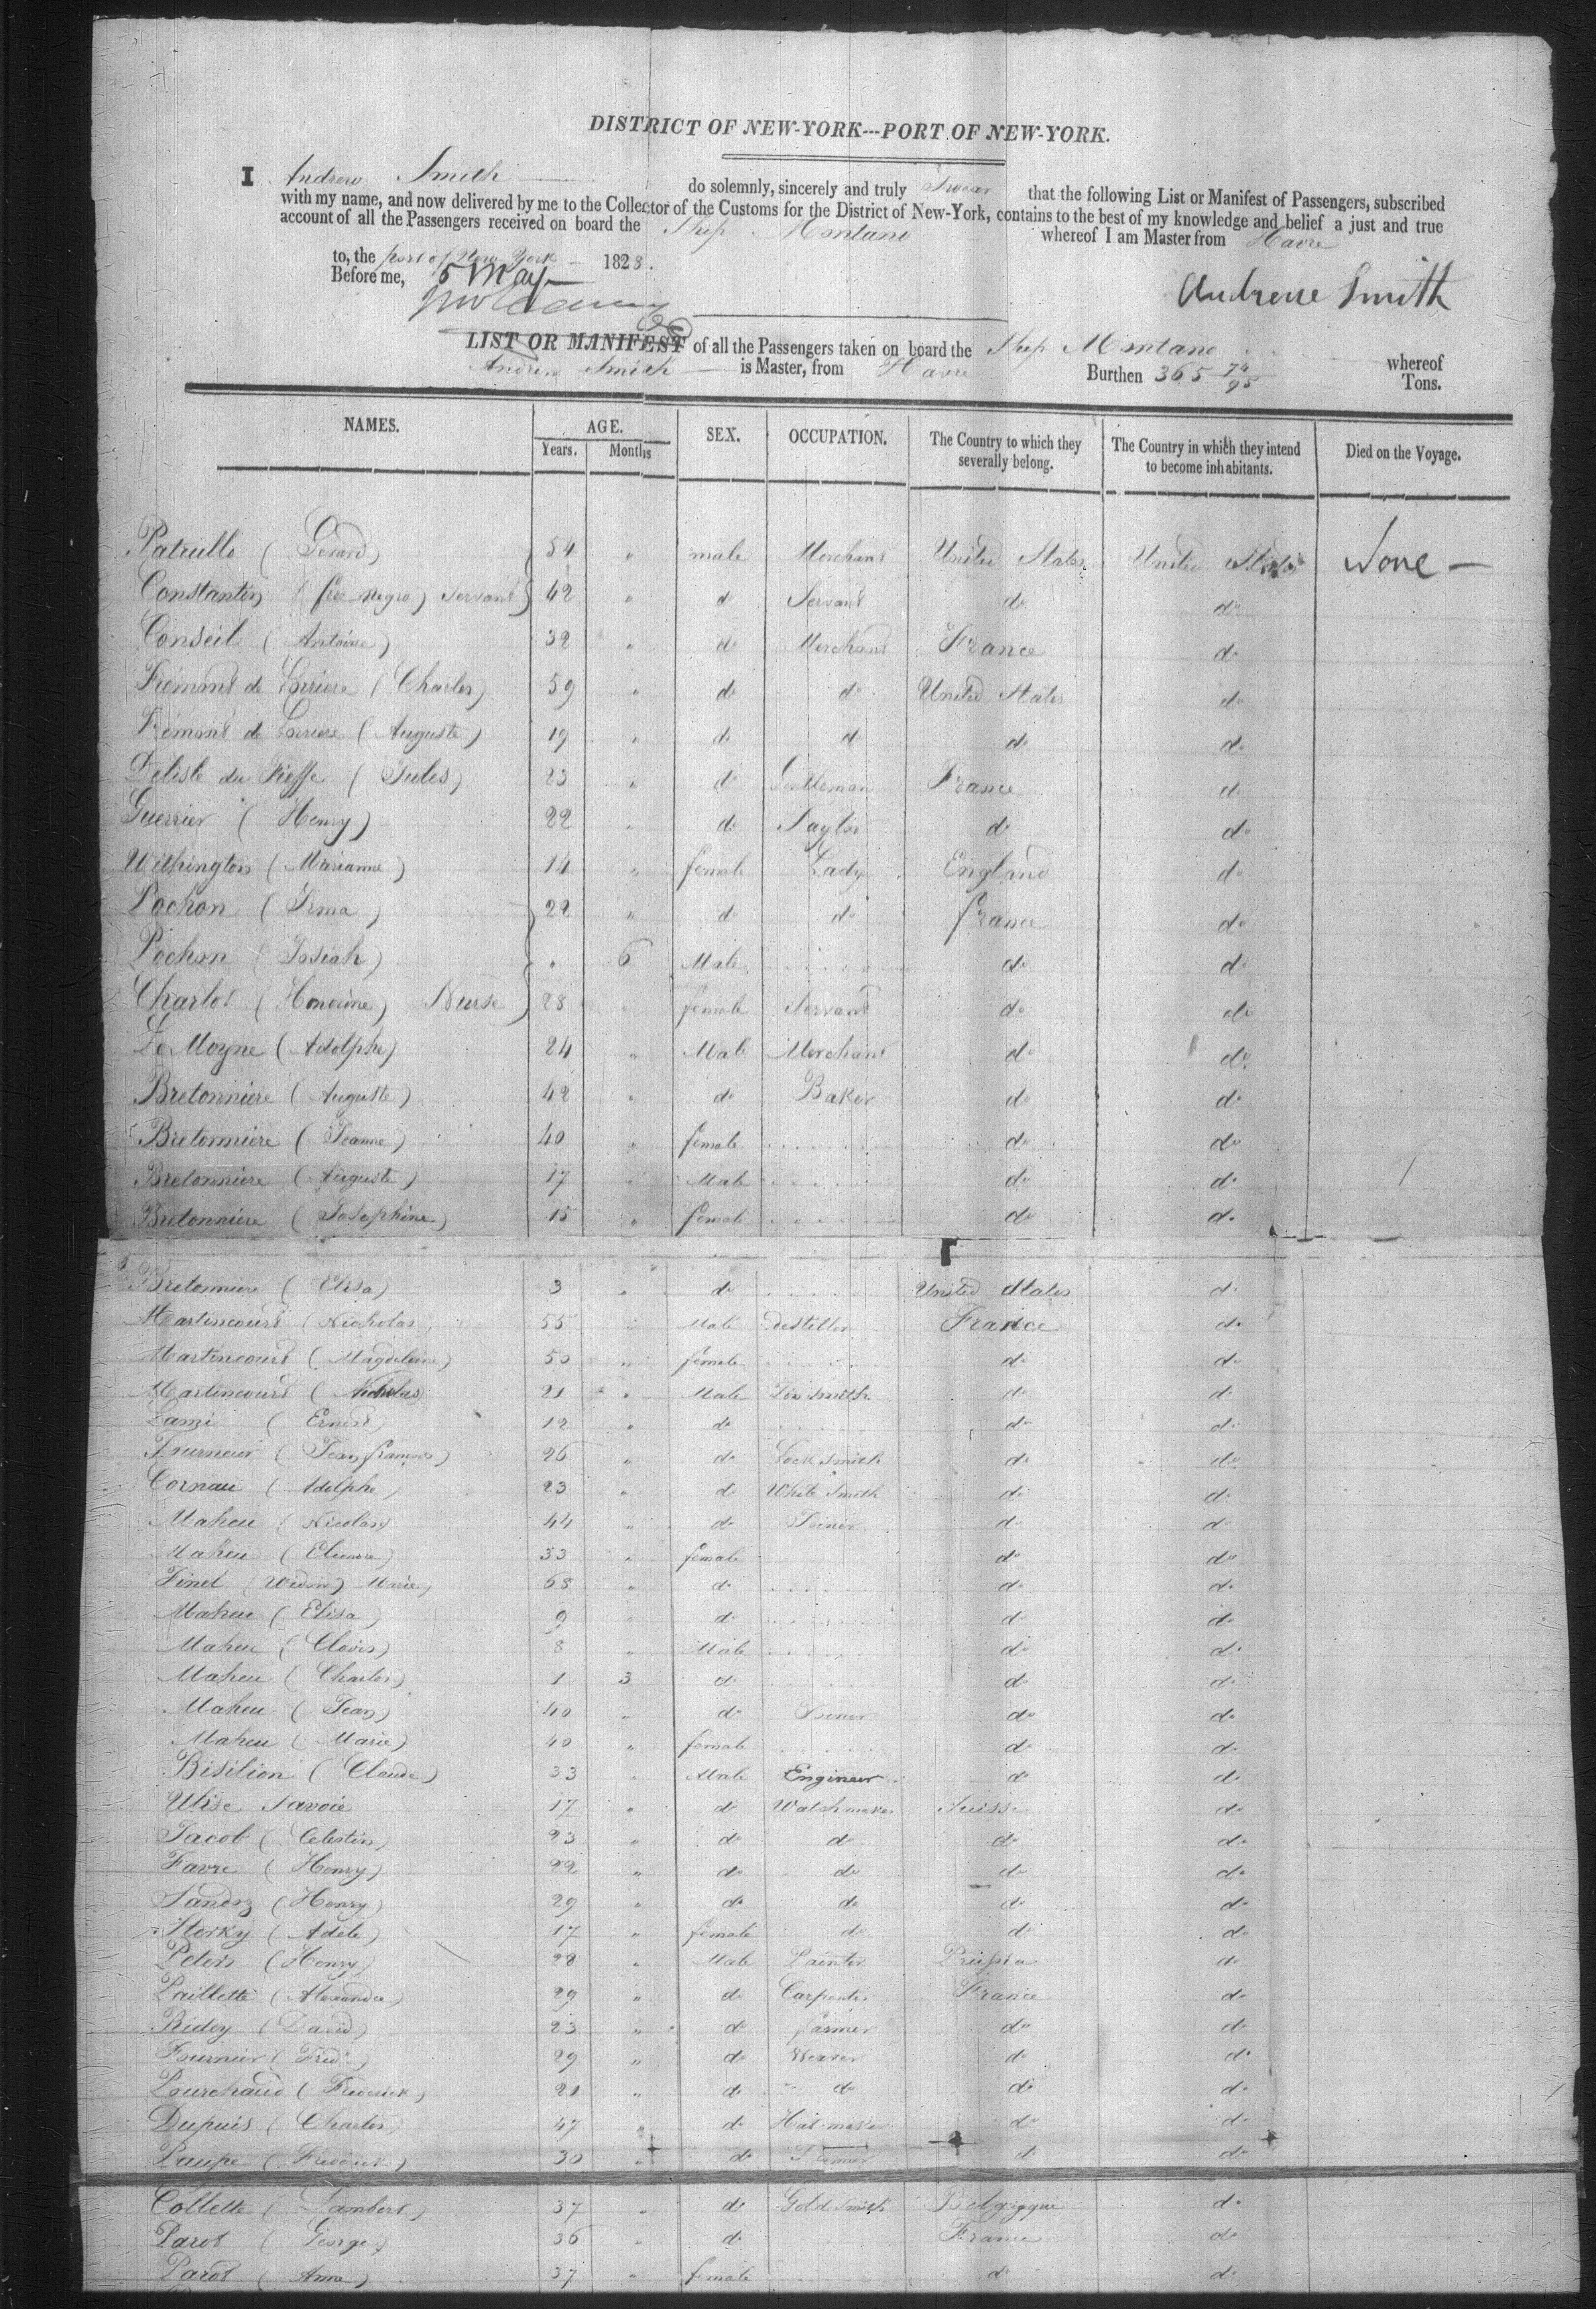 DISTRICT OF NEW-YORK---PORT OF NEW-YORK.
I Andrew Smith do solemnly, sincerely and truly Swear that the following List or Manifest of Passengers, subscribed
with my name, and now delivered by me to the Collector of the Customs for the District of New-York, contains to the best of my knowledge and belief a just and true
account of all the Passengers received on board the Ship Montano whereof I am Master from Havre
to, the port of New York 1828.
Before me, 5 May
Andrew Smith
LIST OR MANIFEST of all the Passengers taken on board the Ship Montano whereof
Andrew Smith is Master, from Havre Burthen 365 74/95 Tons.
NAMES. AGE. SEX. OCCUPATION. The Country to which they severally belong. The Country in which they intend to become inhabitants. Died on the Voyage.
Years. Months
Patrullo (Gerard) 54 " male Merchant United States United States None —
Constantin (free negro) Servant 42 " do Servant do do
Conseil (Antoine) 32 " do Merchant France do
Fremont de Lorriere (Charles) 59 " do do United States do
Fremont de Lorriere (Auguste) 19 " do do do do
Delisle du Fieffe (Jules) 23 " do Gentleman France do
Guerrier (Henry) 22 " do Saylor do do
Withington (Marianne) 14 " female Lady England do
Pochon (Irma) 22 " do do france do
Pochon (Josiah) " 6 Male do do
Charlot (Honorine) Nurse 28 female Servant do do
Le Moyne (Adolphe) 24 " Male Merchant do do
Bretonniere (Auguste) 42 " do Baker do do
Bretonniere (Jeanne) 40 " female do do
Bretonniere (Auguste) 17 " Male do do
Bretonniere (Josephine) 15 " female do do
Bretonniere (Elisa) 3 " do United States do
Martincourt (Nicholas) 55 " Male distiller France do
Martincourt (Magdeleine) 50 " female do do
Martincourt (Nicholas) 21 " Male Tin smith do do
Lami (Ernest) 12 " do do do
Fourneur (Jean francois) 26 " do Lock Smith do do
Cornau (Adolphe) 23 " do White Smith do do
Maheu (Nicolas) 44 " do Joiner do do
Maheu (Eleonore) 33 " female do do
Finel (Widow) Marie 68 " do do do
Maheu (Elisa) 9 " do do do
Maheu (Clovis) 8 " Male do do
Maheu (Charles) 1 3 do do do
Maheu (Jean) 40 " do Joiner do do
Maheu (Marie) 40 " female do do
Bisilion (Claude) 33 " Male Engineer do do
Ulise Savoie 17 " do Watchmaker Suisse do
Jacob (Celestin) 23 " do do do do
Favre (Henry) 22 " do do do do
Sandoz (Henry) 29 " do do do do
Sterky (Adele) 17 " female do do do
Peters (Henry) 28 " Male Painter Prussia do
Paillette (Alexandre) 29 " do Carpenter France do
Ridey (David) 23 " do farmer do do
Fournier (Fredk) 29 " do Weaver do do
Pourchaud (Frederick) 21 " do do do do
Dupuis (Charles) 47 " do Hat-maker do do
Paupe (Frederick) 30 " do do do
Collette (Lambert) 37 " do Gold Smith Belgique do
Parot (George) 36 " do France do
Parot (Anne) 37 " female do do